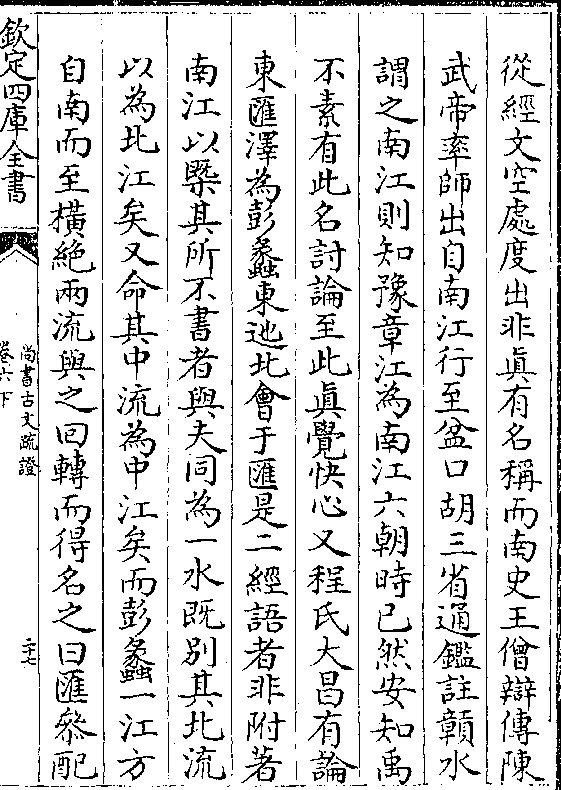 從經文空處度出非眞有名稱而南史王僧辯傳陳
武帝率師出自南江行至盆口胡三省通鑑註贑水
謂之南江則知豫章江為南江六朝時已然安知禹
不素有此名討論至此眞覺快心又程氏大昌有論
東匯澤為彭蠡東迆北會于匯是二經語者非附著
南江以槩其所不書者與夫同為一水既别其北流
以為北江矣又命其中流為中江矣而彭蠡一江方
自南而至横絶兩流與之回轉而得名之曰匯叅配
欽定四庫全書
尚書古文疏證
卷六下
二十七